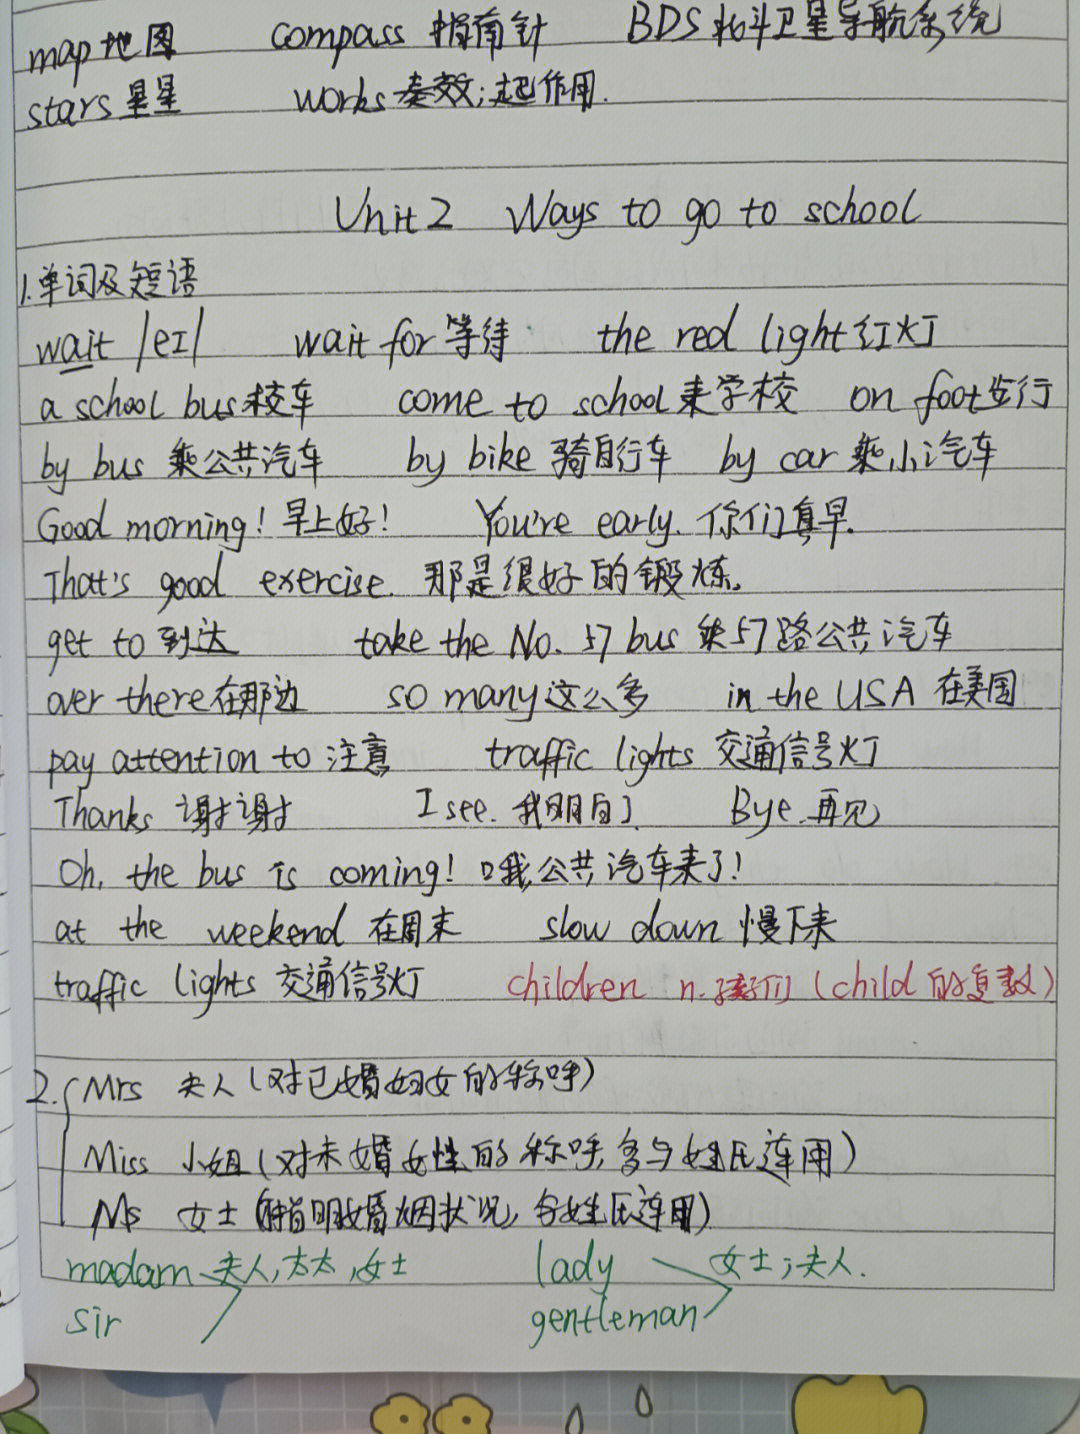 map 地图 compass 指南针 BDS 北斗卫星导航系统
stars 星星 works 奏效;起作用.
Unit 2 Ways to go to school
1.单词及短语
wait /eɪ/ wait for 等待 the red light 红灯
a school bus 校车 come to school 来学校 on foot 步行
by bus 乘公共汽车 by bike 骑自行车 by car 乘小汽车
Good morning! 早上好! You're early. 你们真早.
That's good exercise. 那是很好的锻炼。
get to 到达 take the No. 57 bus 乘57路公共汽车
over there 在那边 so many 这么多 in the USA 在美国
pay attention to 注意 traffic lights 交通信号灯
Thanks 谢谢 I see. 我明白了 Bye. 再见
Oh, the bus is coming! 哦,公共汽车来了!
at the weekend 在周末 slow down 慢下来
traffic lights 交通信号灯 children n. 孩子们 (child 的复数)
2. Mrs 夫人 (对已婚妇女的称呼)
Miss 小姐 (对未婚女性的称呼,多与姓氏连用)
Ms 女士 (指明婚姻状况, 与姓氏连用)
madam 夫人,太太,女士 lady 女士;夫人.
sir gentleman